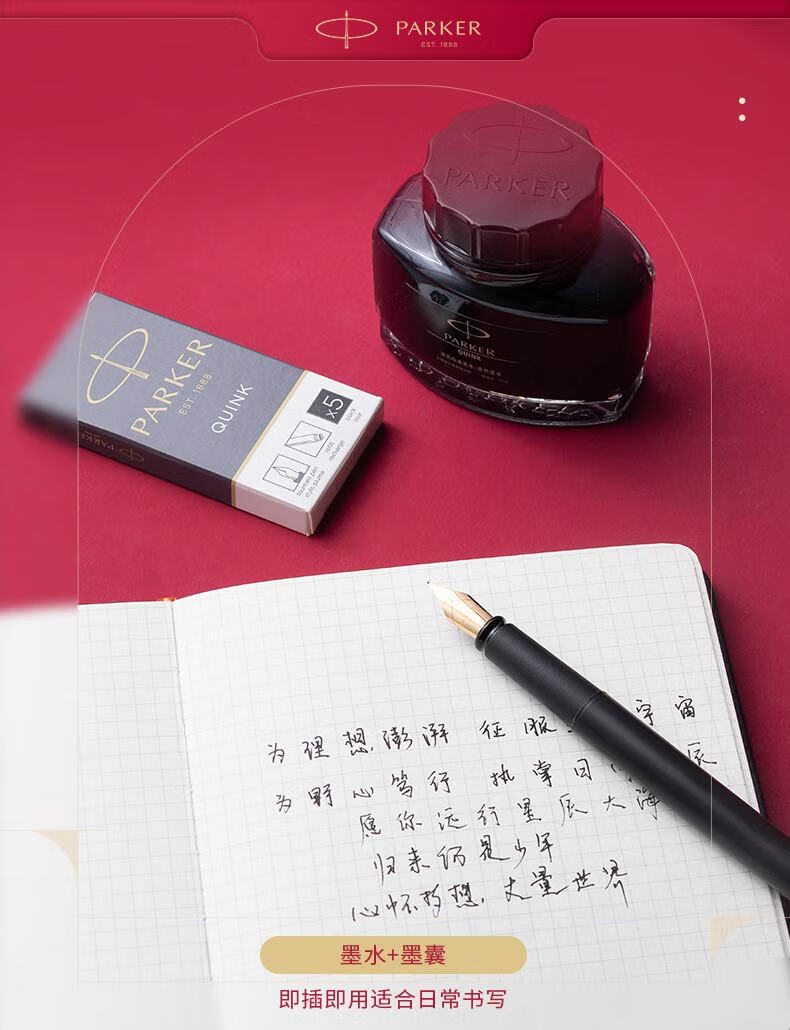 PARKER
EST. 1888
PARKER
PARKER
QUINK
PARKER
EST. 1888
QUINK
x5
black
noir
refill
recharge
fountain pen
stylo plume
PARKER
为理想澎湃 征服 宇宙
为野心笃行 执掌日 辰
愿你远行星辰大海
归来仍是少年
心怀梦想,丈量世界
墨水+墨囊
即插即用适合日常书写